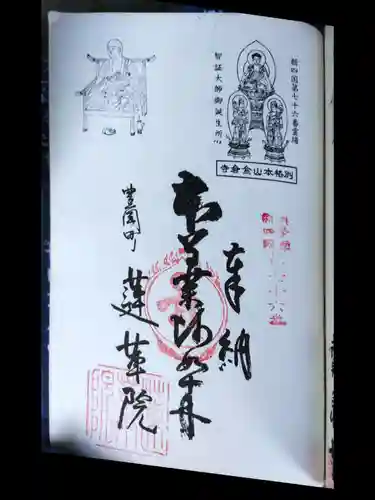 新四国第七十六番霊場
智証大師御誕生所
別格本山金倉寺
奉納
本尊薬師如来
豊岡町
蓮華院